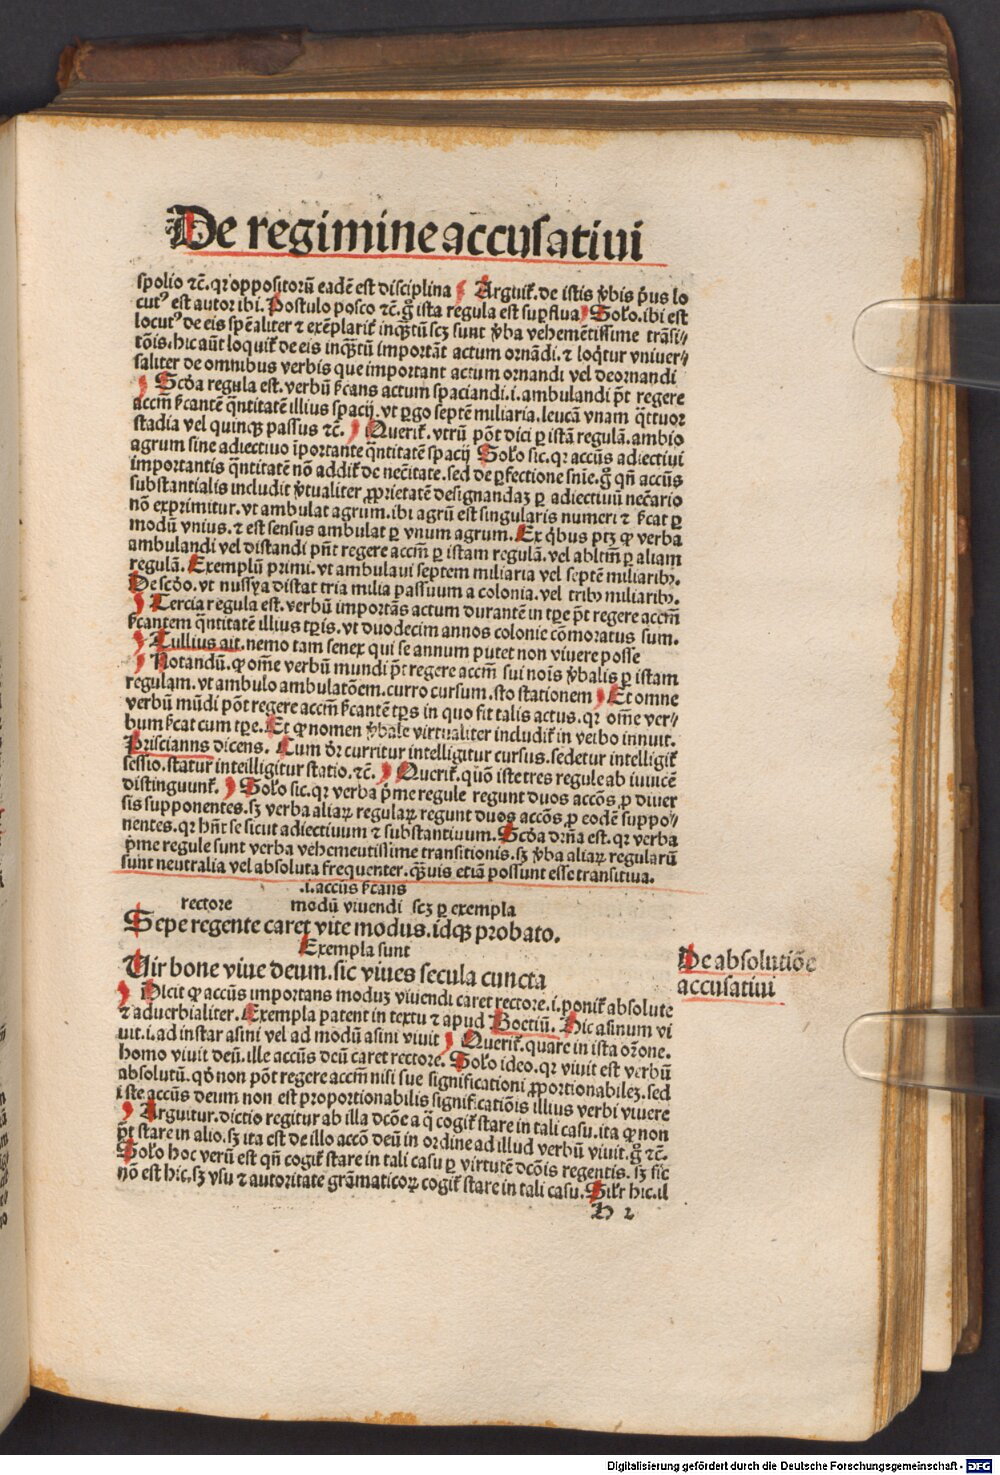 De regimine accusatiui
spolio ⁊c̄. qꝛ oppositorū eadē est disciplina Arguit̄. de istis v̄bis pͥus lo
cutꝰ est autor ibi. Postulo posco ⁊c̄. gͦ ista regula est suꝑflua Solo. ibi est
locutꝰ de eis spēaliter ⁊ exēplarit̄ inqꝫtū scꝫ sunt v̄ba vehemētissime trāsi⸗
tōis. hic aūt loquit̄ de eis inqꝫtū importāt actum ornādi. ⁊ loqͥtur vniuer⸗
saliter de omnibus verbis que important actum ornandi vel deornandi
Scd̓a regula est. verbū ẜcans actum spaciandi. i. ambulandi pōt regere
accm̄ ẜcantē q̄ntitatē illius spacij. vt ꝑgo septē miliaria. leucā vnam qͣttuor
stadia vel quinqꝫ passus ⁊c̄. Querit̄. vtrū pōt dici ꝑ istā regulā. ambio
agrum sine adiectiuo īportante q̄ntitatē spacij Solo sic. qꝛ accūs adiectiui
importantis q̄ntitatē nō addit̄ de nec̄itate. sed de ꝑfectione sn̄ie. gͦ qn̄ accūs
substantialis includit v̓tualiter ꝓprietatē designandaꝫ ꝑ adiectiuū nec̄ario
nō exprimitur. vt ambulat agrum. ibi agrū est singularis numeri ⁊ ẜcat ꝑ
modū vnius. ⁊ est sensus ambulat ꝑ vnum agrum. Ex qͥbus ptꝫ ꝙ verba
ambulandi vel distandi pn̄t regere accm̄ ꝑ istam regulā. vel abltm̄ ꝑ aliam
regulā. Exemplū primi. vt ambulaui septem miliaria vel septē miliaribꝰ.
De scd̓o. vt nussya distat tria milia passuum a colonia. vel tribꝰ miliaribꝰ.
Tercia regula est. verbū importās actum durantē in tꝑe pōt regere accm̄
ẜcantem q̄ntitatē illius tꝑis. vt duodecim annos colonie cōmoratus sum.
Tullius ait. nemo tam senex qui se annum putet non viuere posse
Notandū. ꝙ om̄e verbū mundi pōt regere accm̄ sui nois v̄balis ꝑ istam
regulam. vt ambulo ambulatōem. curro cursum. sto stationem Et omne
verbū mūdi pōt regere accm̄ ẜcantē tꝑs in quo fit talis actus. qꝛ om̄e ver⸗
bum ẜcat cum tꝑe. Et ꝙ nomen v̄bale virtualiter includit̄ in verbo innuit.
Priscianns dicens. Cum dr̄ curritur intelligitur cursus. sedetur intelligit̄
sessio. statur inteilligitur statio. ⁊c̄. Querit̄. quō iste tres regule ab iuuicē
distinguunt̄. Solo sic. qꝛ verba pͥme regule regunt duos accōs ꝓ diuer
sis supponentes. sꝫ verba aliaꝝ regulaꝝ regunt duos accōs ꝓ eodē suppo⸗
nentes. qꝛ hn̄t se sicut adiectiuum ⁊ substantiuum. Scd̓a dr̄na est. qꝛ verba
pͥme regule sunt verba vehemeutissime transitionis. sꝫ v̄ba aliaꝝ regularū
sunt neutralia vel absoluta frequenter. qꝫuis etiā possunt esse transitiua.
.i. accūs ẜcans
rectore modū viuendi scꝫ ꝑ exempla
Sepe regente caret vite modus. idqꝫ probato.
Exempla sunt
Uir bone viue deum. sic viues secula cuncta
De absolutiōe
accusatiui
Dicit ꝙ accūs importans moduꝫ viuendi caret rectore. i. ponit̄ absolute
⁊ aduerbialiter. Exempla patent in textu ⁊ apud Boetiū. Hic asinum vi
uit. i. ad instar asini vel ad modū asini viuit Querit̄. quare in ista or̄one.
homo viuit deū. ille accūs deū caret rectore. Solo ideo. qꝛ viuit est verbū
absolutū. qd̓ non pōt regere accm̄ nisi sue significationi ꝓportionabileꝫ. sed
iste accūs deum non est proportionabilis significatiōis illius verbi viuere
Arguitur. dictio regitur ab illa dcōe a qͣ cogit̄ stare in tali casu. ita ꝙ non
pōt stare in alio. sꝫ ita est de illo accō deū in ordine ad illud verbū viuit. gͦ ⁊c̄.
Solo hoc verū est qn̄ cogit̄ stare in tali casu ꝑ virtutē dcōis regentis. sꝫ sic
nō est hic. sꝫ vsu ⁊ autoritate grāmaticoꝝ cogit̄ stare in tali casu. Silr̄ hic. il
H 2
Digitalisierung gefördert durch die Deutsche Forschungsgemeinschaft - DFG